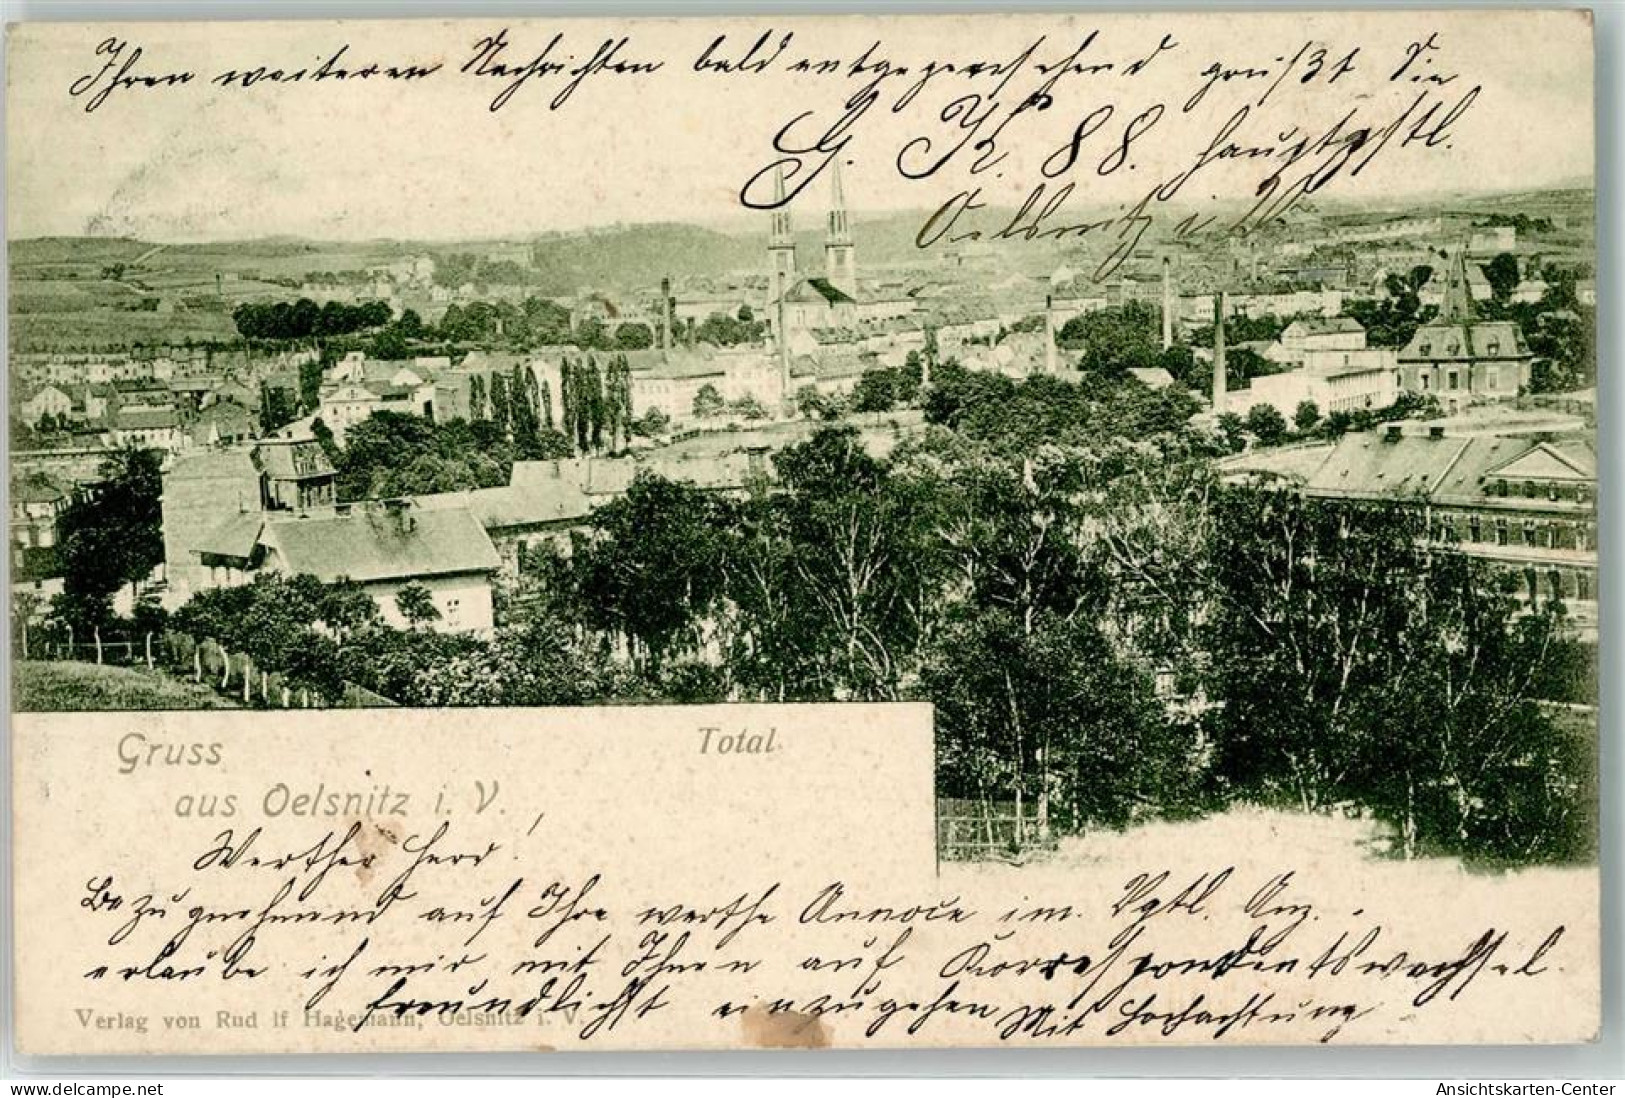 Ihren weiteren Nachrichten bald entgegensehend grüßt Sie
G. K. 88. hauptpstl.
Oelsnitz i. V.
Gruss
aus Oelsnitz i. V.
Total
Werther Herr!
Bezugnehmend auf Ihre werthe Annoce im. Vgtl. Anz.
erlaube ich mir mit Ihnen auf Korrespondentswechsel
freundlichst einzugehen Mit Hochachtung
Verlag von Rud lf Hagemann, Oelsnitz i. V.
delcampe.net
Ansichtskarten-Center